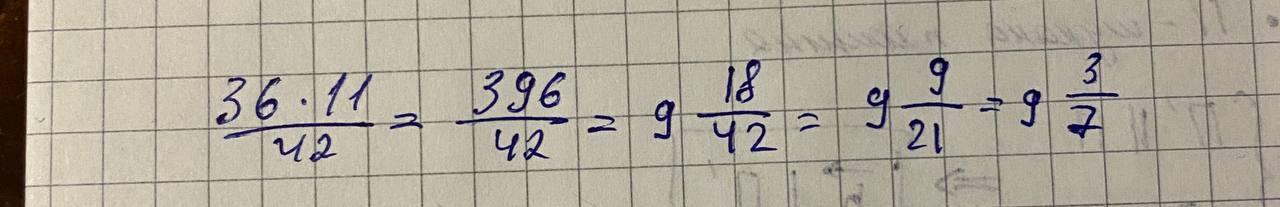 36·11/42 = 396/42 = 9 18/42 = 9 9/21 = 9 3/7